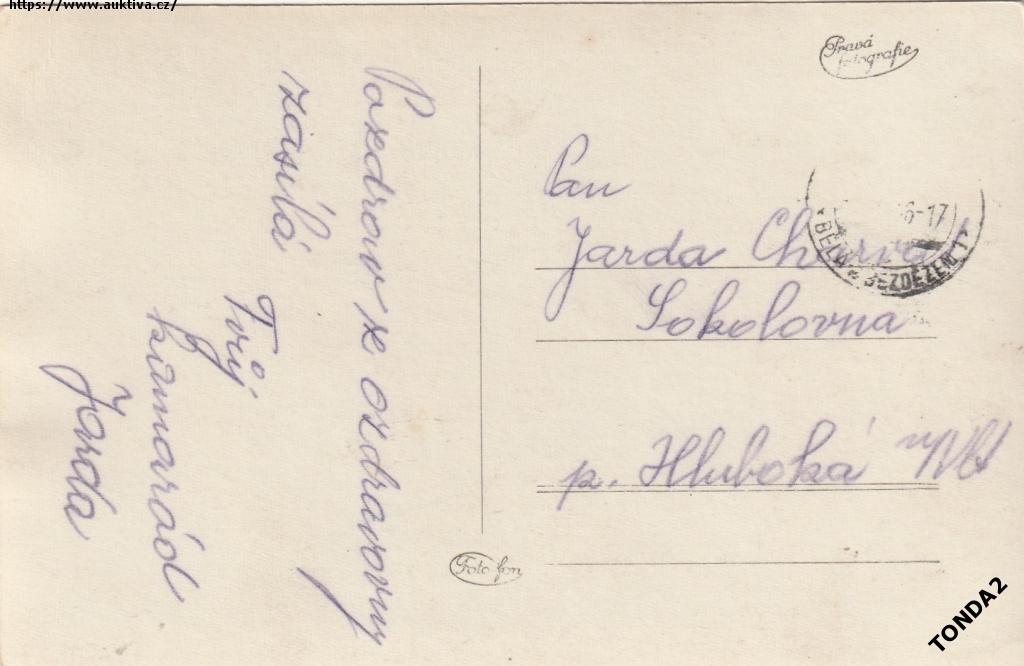 https://www.auktiva.cz/
Pozdrov z ozdravovny
zasílá
Tvůj
kamarád
Jarda
Pravá
fotografie
Pan
Jarda
Sokolovna
p. Hluboká n/Vlt
6-17
BĚLÁ BEZDĚZEM 1
Foto fon
TONDA2